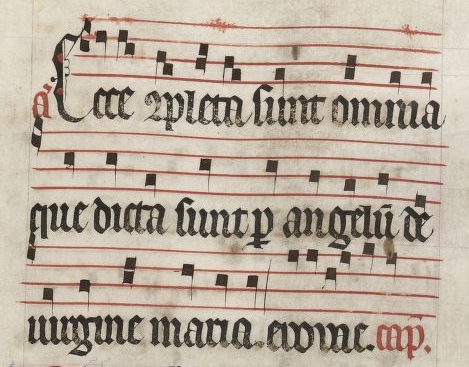 a̅ Ecce ꝯpleta sunt omnia
que dicta sunt ꝑ angelū de
uirgine maria. euouae. cap̄.